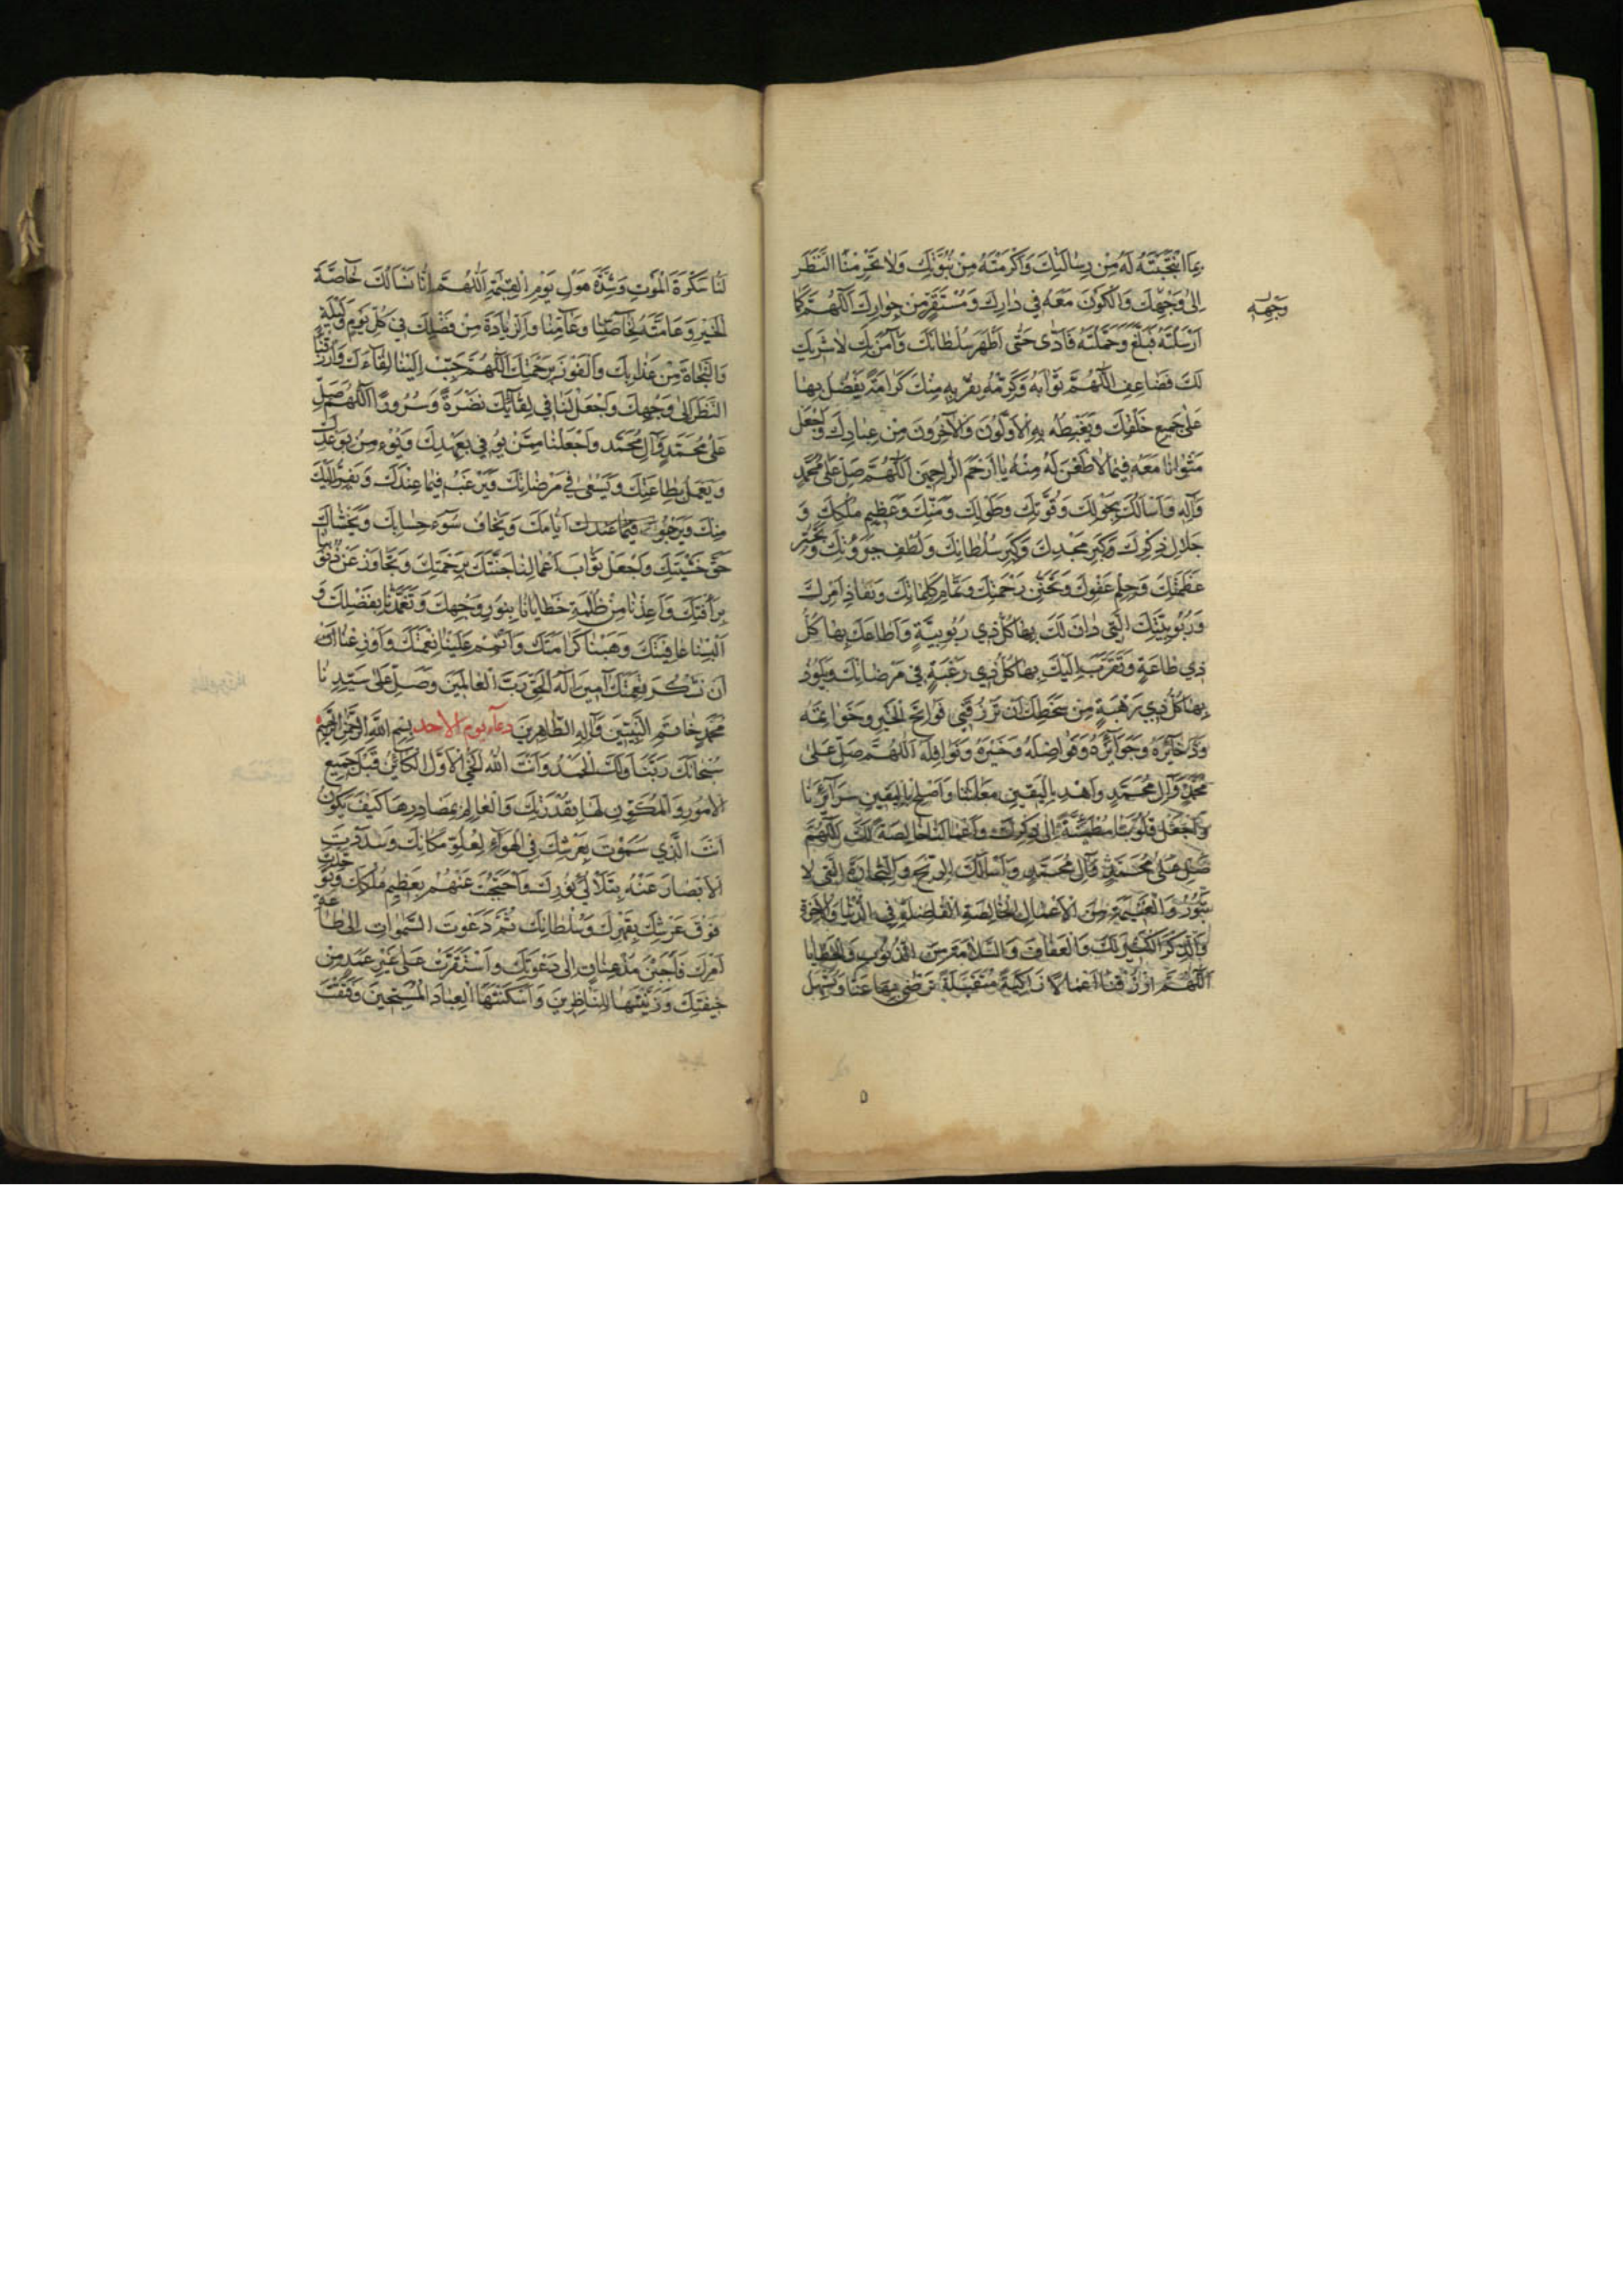 بِمَا انْتَجَبْتَهُ لَهُ مِنْ رِسَالَتِكَ وَأَكْرَمْتَهُ مِنْ نُبُوَّتِكَ وَلَا تَحْرِمْنَا النَّظَرَ
إِلَى وَجْهِكَ وَالْكَوْنَ مَعَهُ فِي دَارِكَ وَمُسْتَقَرٍّ مِنْ جِوَارِكَ اَللّٰهُمَّ كَمَا
وَجْهِهِ
أَرْسَلْتَهُ فَبَلَّغَ وَحَمَّلْتَهُ فَأَدَّى حَتَّى أَظْهَرَ سُلْطَانَكَ وَآمَنَ بِكَ لَا شَرِيكَ
لَكَ فَضَاعِفِ اللّٰهُمَّ ثَوَابَهُ وَكَرِّمْهُ بِقُرْبِهِ مِنْكَ كَرَامَةً يَفْضُلُ بِهَا
عَلَى جَمِيعِ خَلْقِكَ وَيَغْبِطُهُ بِهِ الْأَوَّلُونَ وَالْآخِرُونَ مِنْ عِبَادِكَ وَاجْعَلْ
مَثْوَانَا مَعَهُ فِيمَا لَا ظَعْنَ لَهُ مِنْهُ يَا أَرْحَمَ الرَّاحِمِينَ اَللّٰهُمَّ صَلِّ عَلَى مُحَمَّدٍ
وَآلِهِ وَأَسْأَلُكَ بِحَوْلِكَ وَقُوَّتِكَ وَطَوْلِكَ وَمَنِّكَ وَعَظِيمِ مُلْكِكَ وَ
جَلَالِ ذِكْرِكَ وَكِبَرِ مَجْدِكَ وَكِبَرِ سُلْطَانِكَ وَلُطْفِ جَبَرُوتِكَ وَتَجَبُّرِ
عَظَمَتِكَ وَحِلْمِ عَفْوِكَ وَتَحَنُّنِ رَحْمَتِكَ وَتَمَامِ كَلِمَاتِكَ وَنَفَاذِ أَمْرِكَ
وَرُبُوبِيَّتِكَ الَّتِي دَانَ لَكَ بِهَا كُلُّ ذِي رُبُوبِيَّةٍ وَأَطَاعَكَ بِهَا كُلُّ
ذِي طَاعَةٍ وَتَقَرَّبَ إِلَيْكَ بِهَا كُلُّ ذِي رَغْبَةٍ فِي مَرْضَاتِكَ وَيَلُوذُ
بِهَا كُلُّ ذِي رَهْبَةٍ مِنْ سَخَطِكَ أَنْ تَرْزُقَنِي فَوَاتِحَ الْخَيْرِ وَخَوَاتِمَهُ
وَذَخَائِرَهُ وَجَوَائِزَهُ وَفَوَاضِلَهُ وَخَيْرَهُ وَنَوَافِلَهُ اَللّٰهُمَّ صَلِّ عَلَى
مُحَمَّدٍ وَآلِ مُحَمَّدٍ وَاهْدِ بِالْيَقِينِ مَعَالِنَنَا وَأَصْلِحْ بِالْيَقِينِ سَرَائِرَنَا
وَاجْعَلْ قُلُوبَنَا مُطْمَئِنَّةً إِلَى ذِكْرِكَ وَأَعْمَالَنَا خَالِصَةً لَكَ اَللّٰهُمَّ
صَلِّ عَلَى مُحَمَّدٍ وَآلِ مُحَمَّدٍ وَأَسْأَلُكَ الرِّبْحَ وَالتِّجَارَةَ الَّتِي لَا
تَبُورُ وَالْغَنِيمَةَ مِنَ الْأَعْمَالِ الْخَالِصَةِ الْفَاضِلَةِ فِي الدُّنْيَا وَالْآخِرَةِ
وَالذِّكْرَ الْكَثِيرَ لَكَ وَالْعَفَافَ وَالسَّلَامَةَ مِنَ الذُّنُوبِ وَالْخَطَايَا
اَللّٰهُمَّ ارْزُقْنَا أَعْمَالًا زَاكِيَةً مُتَقَبَّلَةً تَرْضَى بِهَا عَنَّا وَتُسَهِّلُ
٥
لَنَا سَكْرَةَ الْمَوْتِ وَشِدَّةَ هَوْلِ يَوْمِ الْقِيٰمَةِ اَللّٰهُمَّ إِنَّا نَسْأَلُكَ خَاصَّةَ
الْخَيْرِ وَعَامَّتَهُ لِخَاصِّنَا وَعَامِّنَا وَالزِّيَادَةَ مِنْ فَضْلِكَ فِي كُلِّ يَوْمٍ وَلَيْلَةٍ
وَالنَّجَاةَ مِنْ عَذَابِكَ وَالْفَوْزَ بِرَحْمَتِكَ اَللّٰهُمَّ حَبِّبْ إِلَيْنَا لِقَاءَكَ وَارْزُقْنَا
النَّظَرَ إِلَى وَجْهِكَ وَاجْعَلْ لَنَا فِي لِقَائِكَ نَضْرَةً وَسُرُورًا اَللّٰهُمَّ صَلِّ
عَلَى مُحَمَّدٍ وَآلِ مُحَمَّدٍ وَاجْعَلْنَا مِمَّنْ يُوفِي بِعَهْدِكَ وَيُؤْمِنُ بِوَعْدِكَ
وَيَعْمَلُ بِطَاعَتِكَ وَيَسْعَى فِي مَرْضَاتِكَ وَيَرْغَبُ فِيمَا عِنْدَكَ وَيَفِرُّ إِلَيْكَ
مِنْكَ وَيَرْجُو أَيَّامَكَ وَيَخَافُ سُوءَ حِسَابِكَ وَيَخْشَاكَ
حَقَّ خَشْيَتِكَ وَاجْعَلْ ثَوَابَ أَعْمَالِنَا جَنَّتَكَ بِرَحْمَتِكَ وَتَجَاوَزْ عَنْ ذُنُوبِنَا
بِرَأْفَتِكَ وَأَعِذْنَا مِنْ ظُلْمَةِ خَطَايَانَا بِنُورِ وَجْهِكَ وَتَغَمَّدْنَا بِفَضْلِكَ وَ
أَلْبِسْنَا عَافِيَتَكَ وَهَبْنَا كَرَامَتَكَ وَأَتْمِمْ عَلَيْنَا نِعْمَتَكَ وَأَوْزِعْنَا أَنْ
أَنْ نَشْكُرَ نِعْمَتَكَ آمِينَ إِلٰهَ الْحَقِّ رَبَّ الْعَالَمِينَ وَصَلِّ عَلَى سَيِّدِنَا
مُحَمَّدٍ خَاتَمِ النَّبِيِّينَ وَآلِهِ الطَّاهِرِينَ دعاء يوم الأحد بِسْمِ اللّٰهِ الرَّحْمٰنِ الرَّحِيمِ
سُبْحَانَكَ رَبَّنَا وَلَكَ الْحَمْدُ وَأَنْتَ اللّٰهُ الْحَيُّ الْأَوَّلُ الْكَائِنُ قَبْلَ جَمِيعِ
الْأُمُورِ وَالْمُكَوِّنِ لَهَا بِقُدْرَتِكَ وَالْعَالِمِ بِمَصَادِرِهَا كَيْفَ يَكُونُ
أَنْتَ الَّذِي سَمَوْتَ بِعَرْشِكَ فِي الْهَوَاءِ لِعُلُوِّ مَكَانِكَ وَسَدَدْتَ
الْأَبْصَارَ عَنْهُ بِتَلَأْلُؤِ نُورِكَ وَاحْتَجَبْتَ عَنْهُمْ بِعَظِيمِ مُلْكِكَ وَتَوَحَّدْتَ
فَوْقَ عَرْشِكَ بِقَهْرِكَ وَسُلْطَانِكَ ثُمَّ دَعَوْتَ السَّمٰوَاتِ إِلَى طَاعَةِ
أَمْرِكَ فَأَجَبْنَ مُذْعِنَاتٍ إِلَى دَعْوَتِكَ وَاسْتَقَرَّتْ عَلَى غَيْرِ عَمَدٍ مِنْ
خِيفَتِكَ وَزَيَّنْتَهَا لِلنَّاظِرِينَ وَأَسْكَنْتَهَا الْعِبَادَ الْمُسَبِّحِينَ وَفَتَقْتَ